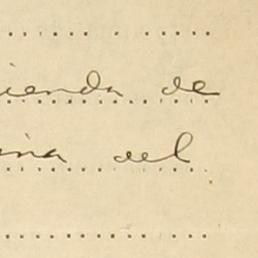 ienda de
ina del